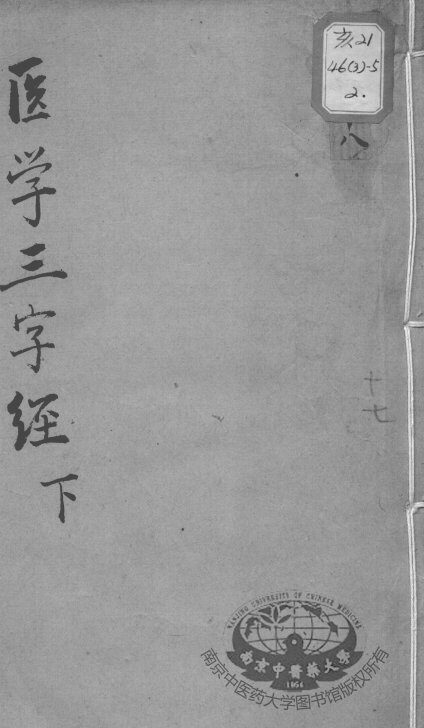 医学三字经
下
亥21
46(3)-5
2.
八
十七
NANJING UNIVERSITY OF CHINESE MEDICINE
南京中醫藥大學
1954
南京中医药大学图书馆版权所有